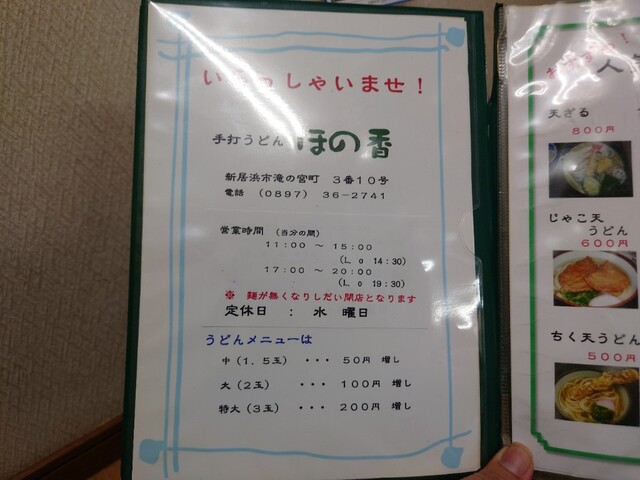 いらっしゃいませ！
手打うどん ほの香
新居浜市滝の宮町 ３番１０号
電話 （０８９７） ３６－２７４１
営業時間 （当分の間）
１１：００ ～ １５：００
（Ｌ．ｏ １４：３０）
１７：００ ～ ２０：００
（Ｌ．ｏ １９：３０）
※ 麺が無くなりしだい閉店となります
定休日 ： 水 曜日
うどんメニューは
中（１．５玉） ・・・ ５０円 増し
大（２玉） ・・・ １００円 増し
特大（３玉） ・・・ ２００円 増し
天ざる
８００円
じゃこ天
うどん
６００円
ちく天うどん
５００円